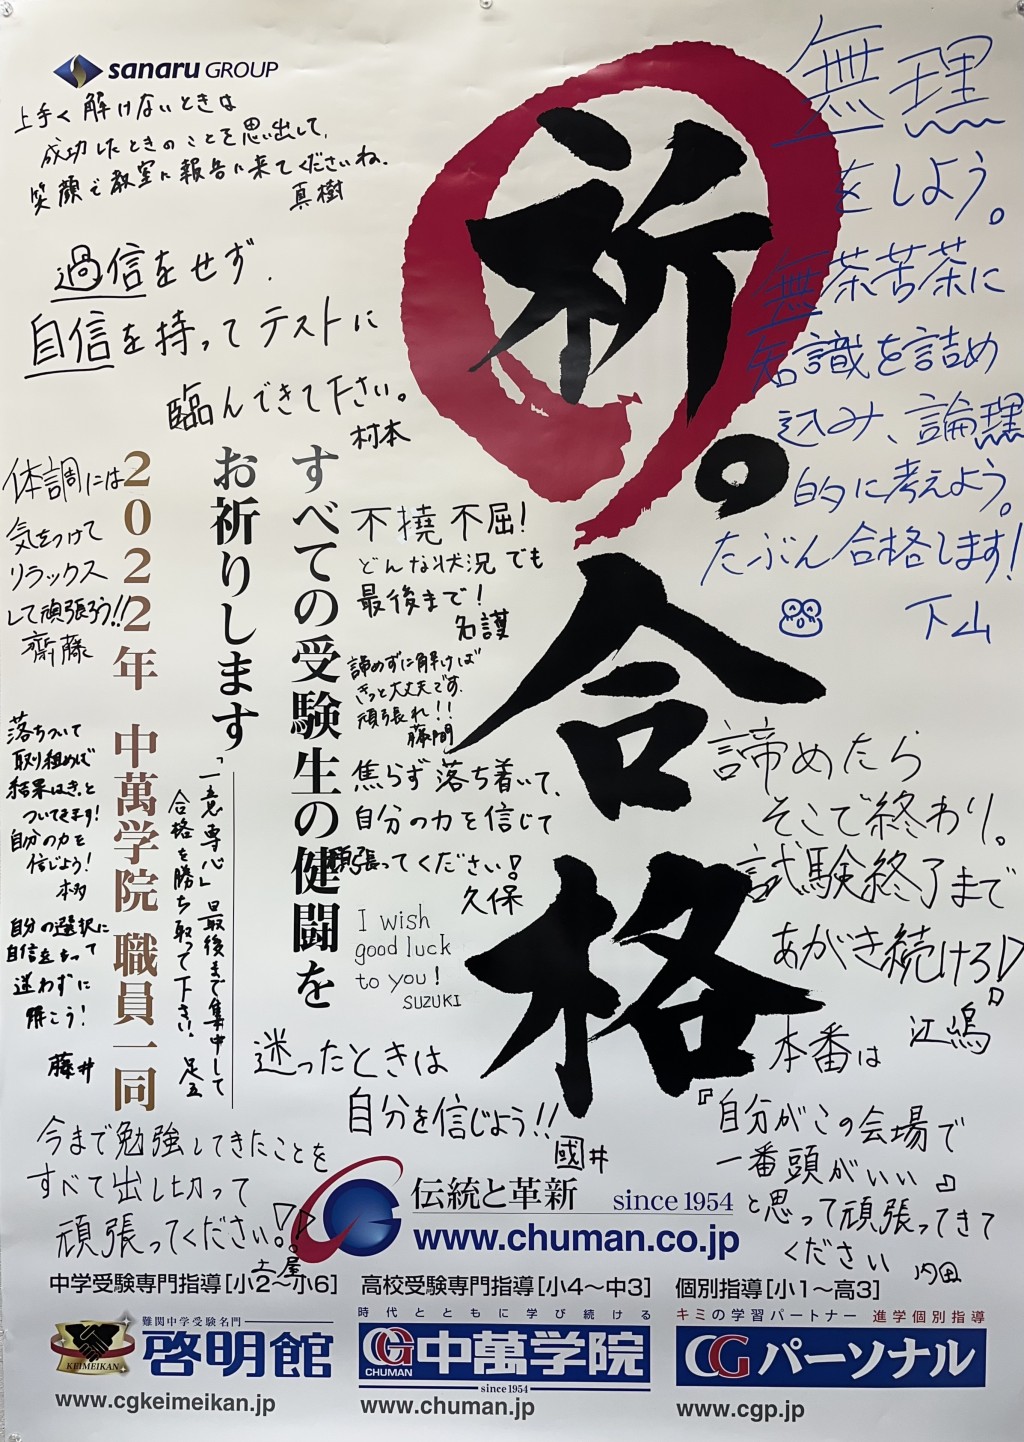 sanaru GROUP
上手く解けないときは
成功したときのことを思い出して、
笑顔で教室に報告に来てくださいね。
真樹
過信をせず
自信を持ってテストに
臨んできて下さい。
村本
祈。合格
無理
をしよう。
無茶苦茶に
知識を詰め
込み、論理
的に考えよう。
たぶん合格します!
下山
すべての受験生の健闘を
お祈りします
2022年 中萬学院 職員一同
体調には
気をつけて
リラックス
して頑張ろう!!
齋藤
不撓不屈!
どんな状況でも
最後まで!
名護
諦めずに解けば
きっと大丈夫です。
頑張れ!!
藤間
焦らず落ち着いて、
自分の力を信じて
頑張ってください!
久保
I wish
good luck
to you!
SUZUKI
諦めたら
そこで終わり。
試験終了まで
あがき続けろ!
江嶋
落ちついて
取り組めば
結果はきっと
ついてきます!
自分の力を
信じよう!
本多
自分の選択に
自信をもって
迷わずに
解こう!
藤井
「一意専心」最後まで集中して
合格を勝ち取って下さい。足立
迷ったときは
自分を信じよう!!
國井
本番は
『自分がこの会場で
一番頭がいい』
と思って頑張ってきて
ください
内田
今まで勉強してきたことを
すべて出し切って
頑張ってください!!
土屋
伝統と革新 since 1954
www.chuman.co.jp
中学受験専門指導[小2〜小6]
難関中学受験名門
KEIMEIKAN
啓明館
www.cgkeimeikan.jp
高校受験専門指導[小4〜中3]
時代とともに学び続ける
CG CHUMAN 中萬学院
since1954
www.chuman.jp
個別指導[小1〜高3]
キミの学習パートナー 進学個別指導
CGパーソナル
www.cgp.jp